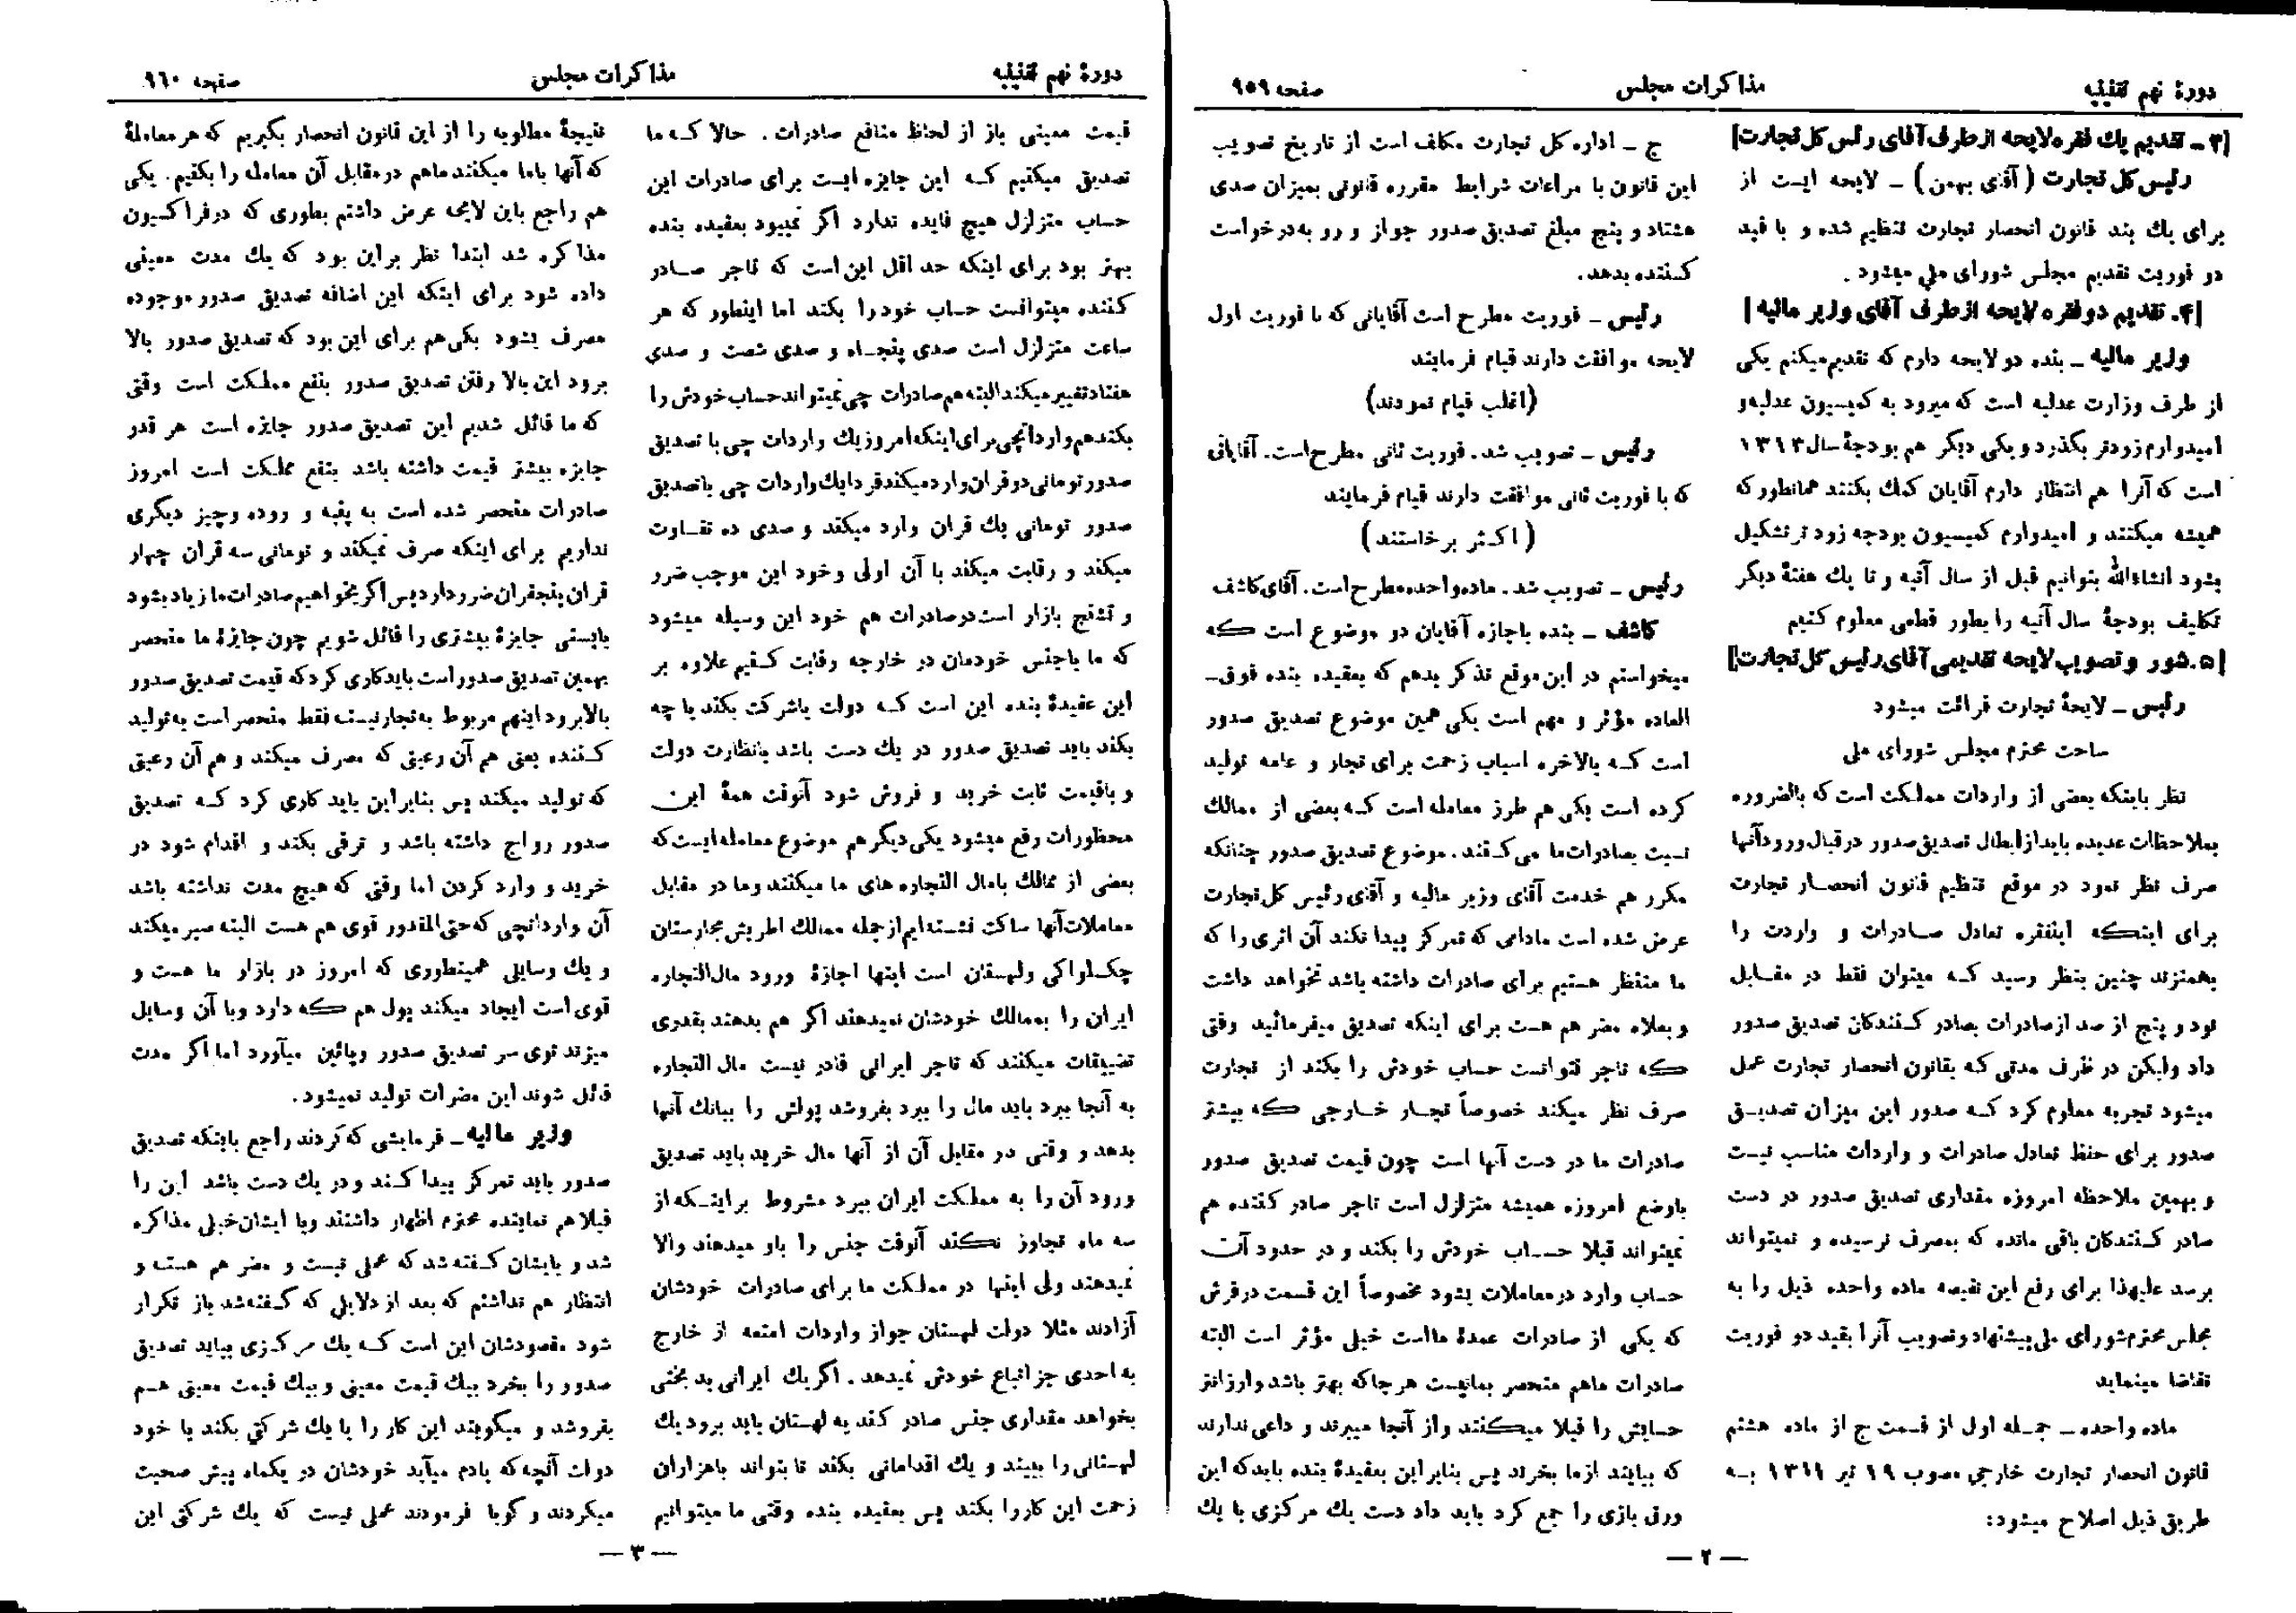 دورهٔ نهم تقنینیه
مذاکرات مجلس
صفحه ۹۵۹
[۳ـ تقدیم یك فقره لایحه از طرف آقای رئیس کل تجارت]
رئیس کل تجارت (آقای بهمن) ـ لایحه ایست از
برای یك بند قانون انحصار تجارت تنظیم شده و با قید
دو فوریت تقدیم مجلس شورای ملی میشود .
[۴ـ تقدیم دو فقره لایحه از طرف آقای وزیر مالیه]
وزیر مالیه ـ بنده دو لایحه دارم که تقدیم میکنم یکی
از طرف وزارت عدلیه است که میرود به کمیسیون عدلیه و
امیدوارم زودتر بگذرد و یکی دیگر هم بودجهٔ سال ۱۳۱۳
است که آنرا هم انتظار دارم آقایان کمك بکنند همانطور که
همیشه میکنند و امیدوارم کمیسیون بودجه زودتر تشکیل
بشود انشاءالله بتوانیم قبل از سال آتیه و تا یك هفتهٔ دیگر
تکلیف بودجهٔ سال آتیه را بطور قطعی معلوم کنیم
[۵ـ شور و تصویب لایحه تقدیمی آقای رئیس کل تجارت]
رئیس ـ لایحهٔ تجارت قرائت میشود
ساحت محترم مجلس شورای ملی
نظر باینکه بعضی از واردات مملکت است که بالضروره
بملاحظات عدیده باید از ابطال تصدیق صدور در قبال ورود آنها
صرف نظر نمود در موقع تنظیم قانون انحصار تجارت
برای اینکه اینفقره تعادل صادرات و واردت را
بهمنزند چنین بنظر رسید که میتوان فقط در مقابل
نود و پنج از صد از صادرات بصادر کنندگان تصدیق صدور
داد ولیکن در ظرف مدتی که بقانون انحصار تجارت عمل
میشود تجربه معلوم کرد که صدور این میزان تصدیق
صدور برای حفظ تعادل صادرات و واردات مناسب نیست
و بهمین ملاحظه امروزه مقداری تصدیق صدور در دست
صادر کنندگان باقی مانده که بمصرف نرسیده و نمیتواند
برسد علیهذا برای رفع این نقیصه ماده واحده ذیل را به
مجلس محترم شورای ملی پیشنهاد و تصویب آنرا بقید دو فوریت
تقاضا مینماید
ماده واحده ـ جمله اول از قسمت ج از ماده هشتم
قانون انحصار تجارت خارجی مصوب ۱۹ تیر ۱۳۱۱ به
طریق ذیل اصلاح میشود:
ج ـ اداره کل تجارت مکلف است از تاریخ تصویب
این قانون با مراعات شرایط مقرره قانونی بمیزان صدی
هشتاد و پنج مبلغ تصدیق صدور جواز ورود به درخواست
کننده بدهد.
رئیس ـ فوریت مطرح است آقایانی که با فوریت اول
لایحه موافقت دارند قیام فرمایند
(اغلب قیام نمودند)
رئیس ـ تصویب شد. فوریت ثانی مطرح است. آقایانی
که با فوریت ثانی موافقت دارند قیام فرمایند
(اکثر برخاستند)
رئیس ـ تصویب شد. ماده واحده مطرح است. آقای کاشف
کاشف ـ بنده با اجازه آقایان دو موضوع است که
میخواستم در این موقع تذکر بدهم که بعقیده بنده فوق‌ـ
العاده مؤثر و مهم است یکی همین موضوع تصدیق صدور
است که بالاخره اسباب زحمت برای تجار و عامه تولید
کرده است یکی هم طرز معامله است که بعضی از ممالك
نسبت بصادرات ما می کنند. موضوع تصدیق صدور چنانکه
مکرر هم خدمت آقای وزیر مالیه و آقای رئیس کل تجارت
عرض شده است مادامی که تمرکز پیدا نکند آن اثری را که
ما منتظر هستیم برای صادرات داشته باشد نخواهد داشت
و بعلاوه مضر هم هست برای اینکه تصدیق میفرمائید وقتی
که تاجر نتوانست حساب خودش را بکند از تجارت
صرف نظر میکند خصوصاً تجار خارجی که بیشتر
صادرات ما در دست آنها است چون قیمت تصدیق صدور
باوضع امروزه همیشه متزلزل است تاجر صادر کننده هم
نمیتواند قبلا حساب خودش را بکند و در حدود آن
حساب وارد در معاملات بشود مخصوصاً این قسمت در فرش
که یکی از صادرات عمدهٔ ما است خیلی مؤثر است البته
صادرات ما هم منحصر بما نیست هر جا که بهتر باشد و ارزانتر
حسابش را قبلا میکنند و از آنجا میبرند و داعی ندارند
که بیایند از ما بخرند پس بنابراین بعقیدهٔ بنده باید که این
ورق بازی را جمع کرد باید داد دست یك مرکزی با یك
— ۲ —
دورهٔ نهم تقنینیه
مذاکرات مجلس
صفحه ۹۶۰
قیمت معینی باز از لحاظ منافع صادرات . حالا که ما
تصدیق میکنیم که این جایزه ایست برای صادرات این
حساب متزلزل هیچ فایده ندارد اگر نمیبود بعقیده بنده
بهتر بود برای اینکه حداقل این است که تاجر صادر
کننده میتوانست حساب خود را بکند اما اینطور که هر
ساعت متزلزل است صدی پنجاه و صدی شصت و صدی
هفتاد تغییر میکند البته هم صادرات چی نمیتواند حساب خودش را
بکند هم وارداتچی برای اینکه امروز یك واردات چی با تصدیق
صدور تومانی دو قران وارد میکند فردا یك واردات چی با تصدیق
صدور تومانی یك قران وارد میکند و صدی ده تفاوت
میکند و رقابت میکند با آن اولی و خود این موجب ضرر
و تشنج بازار است در صادرات هم خود این وسیله میشود
که ما باجنس خودمان در خارجه رقابت کنیم علاوه بر
این عقیدهٔ بنده این است که دولت یا شرکت بکند یا چه
بکند باید تصدیق صدور در یك دست باشد با نظارت دولت
و باقیمت ثابت خرید و فروش شود آنوقت همهٔ این
محظورات رفع میشود یکی دیگر هم موضوع معامله ایست که
بعضی از ممالك بامال التجاره های ما میکنند و ما در مقابل
معاملات آنها ساکت نشسته ایم از جمله ممالك اطریش مجارستان
چکسلواکی و لهستان است اینها اجازهٔ ورود مال‌التجاره
ایران را بممالك خودشان نمیدهند اگر هم بدهند بقدری
تضییقات میکنند که تاجر ایرانی قادر نیست مال التجاره
به آنجا ببرد باید مال را ببرد بفروشد پولش را ببانك آنها
بدهد و وقتی در مقابل آن از آنها مال خرید باید تصدیق
ورود آن را به مملکت ایران ببرد مشروط بر اینکه از
سه ماه تجاوز نکند آنوقت جنس را باو میدهند والا
نمیدهند ولی اینها در مملکت ما برای صادرات خودشان
آزادند مثلا دولت لهستان جواز واردات امتعه از خارج
به احدی جز اتباع خودش نمیدهد. اگر یك ایرانی بد بختی
بخواهد مقداری جنس صادر کند به لهستان باید برود یك
لهستانی را ببیند و یك اقداماتی بکند تا بتواند باهزاران
زحمت این کار را بکند پس بعقیده بنده وقتی ما میتوانیم
نتیجهٔ مطلوبه را از این قانون انحصار بگیریم که هر معاملهٔ
که آنها باما میکنند ماهم در مقابل آن معامله را بکنیم. یکی
هم راجع باین لایحه عرض داشتم بطوری که در فراکسیون
مذاکره شد ابتدا نظر براین بود که یك مدت معینی
داده شود برای اینکه این اضافه تصدیق صدور موجوده
مصرف بشود یکی هم برای این بود که تصدیق صدور بالا
برود این بالا رفتن تصدیق صدور بنفع مملکت است وقتی
که ما قائل شدیم این تصدیق صدور جایزه است هر قدر
جایزه بیشتر قیمت داشته باشد بنفع مملکت است امروز
صادرات منحصر شده است به پنبه و روده و چیز دیگری
نداریم برای اینکه صرف نمیکند و تومانی سه قران چهار
قران پنجقران ضرر دارد پس اگر بخواهیم صادرات ما زیاد بشود
بایستی جایزهٔ بیشتری را قائل شویم چون جایزهٔ ما منحصر
بهمین تصدیق صدور است باید کاری کرد که قیمت تصدیق صدور
بالا برود اینهم مربوط به تجار نیست فقط منحصر است به تولید
کننده یعنی هم آن رعیتی که مصرف میکند و هم آن رعیتی
که تولید میکند پس بنابراین باید کاری کرد که تصدیق
صدور رواج داشته باشد و ترقی بکند و اقدام شود در
خرید و وارد کردن اما وقتی که هیچ مدت نداشته باشد
آن وارداتچی که حتی‌المقدور قوی هم هست البته صبر میکند
و یك وسایلی همینطوری که امروز در بازار ما هست و
قوی است ایجاد میکند پول هم که دارد و با آن وسایل
میزند توی سر تصدیق صدور و پائین میآورد اما اگر مدت
قائل شوند این مضرات تولید نمیشود.
وزیر مالیه ـ فرمایشی که کردند راجع باینکه تصدیق
صدور باید تمرکز پیدا کند و در یك دست باشد این را
قبلا هم نماینده محترم اظهار داشتند و با ایشان خیلی مذاکره
شد و بایشان گفته شد که عملی نیست و مضر هم هست و
انتظار هم نداشتم که بعد از دلایلی که گفته شد باز تکرار
شود مقصودشان این است که یك مرکزی بیاید تصدیق
صدور را بخرد بیك قیمت معینی و بیك قیمت معینی هم
بفروشد و میگویند این کار را با یك شرکتی بکند یا خود
دولت آنچه که یادم میآید خودشان در یکماه پیش صحبت
میکردند و گویا فرمودند عملی نیست که یك شرکتی این
— ۳ —